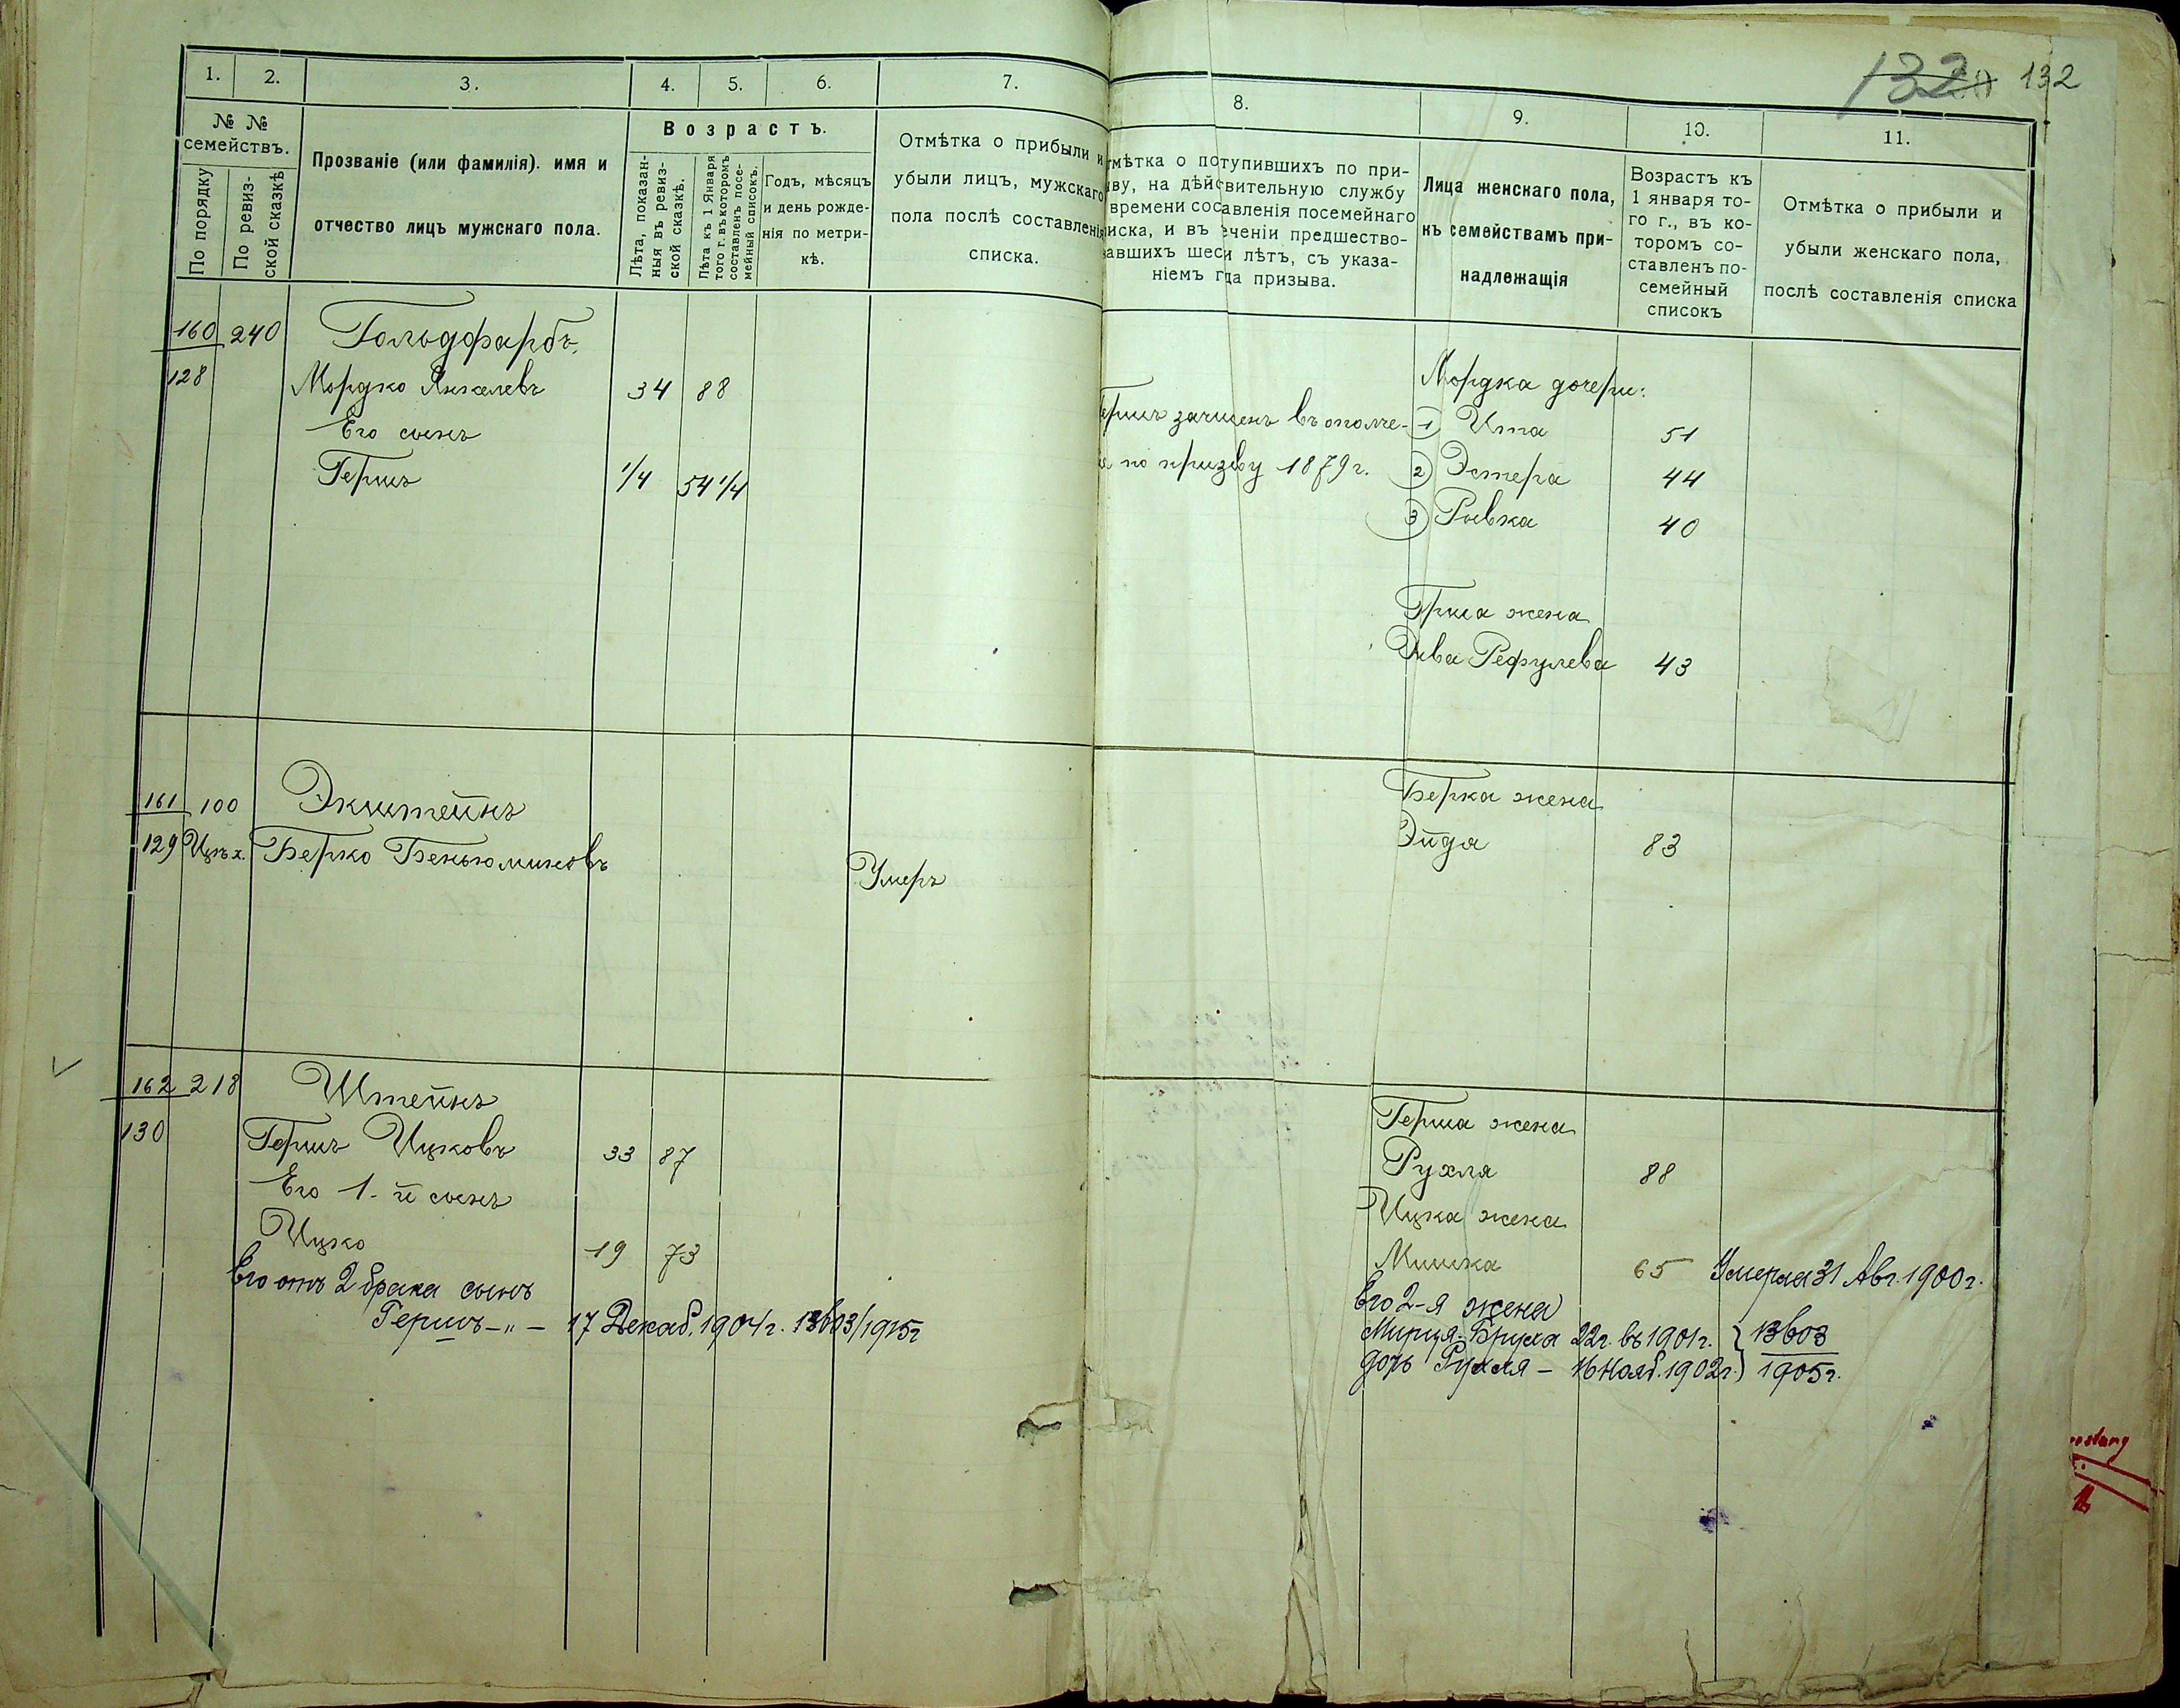 132 132
1. 2. 3. 4. 5. 6. 7.
№ № семействъ.
По порядку
По ревиз-
ской сказкѣ
Прозваніе (или фамилія). имя и
отчество лицъ мужскаго пола.
Возрастъ.
Лѣта, показан-
ныя въ ревиз-
ской сказкѣ.
Лѣта къ 1 Января
того г. въ которомъ
составленъ посе-
мейный списокъ.
Годъ, мѣсяцъ
и день рожде-
нія по метри-
кѣ.
Отмѣтка о прибыли и
убыли лицъ, мужскаго
пола послѣ составленія
списка.
160 240 Гольдфарбъ
128 Мордко Янкелевъ 34 88
Его сынъ
Гершъ 1/4 54 1/4
161 100 Экштейнъ
129 Цех. Берко Беньюминовъ Умеръ
162 218 Штейнъ
130 Гершъ Ицковъ 33 87
Его 1-й сынъ
Ицко 19 73
Его отъ 2 брака сынъ
Гершъ -"- 17 Декаб. 1904 г. /1915 г
8. 9. 10. 11.
тмѣтка о поступившихъ по при-
ыву, на дѣйствительную службу
времени составленія посемейнаго
иска, и въ теченіи предшество-
авшихъ шести лѣтъ, съ указа-
ніемъ года призыва.
Лица женскаго пола,
къ семействамъ при-
надлежащія
Возрастъ къ
1 января то-
го г., въ ко-
торомъ со-
ставленъ по-
семейный
списокъ
Отмѣтка о прибыли и
убыли женскаго пола,
послѣ составленія списка
Мордка дочери:
ершъ зачисленъ въ ополче- 1 Ита 51
по призыву 1879 г. 2 Эстера 44
3 Ривка 40
Герша жена
Рефулева 43
Берка жена
Эйда 83
Герша жена
Рухля 88
Ицка жена
Минка 65 Умерла 31 Авг. 1900 г.
Его 2-я жена
Бруха 22 г. въ 1901 г.
дочь Рухля - 16 Нояб. 1902 г. 1905 г.